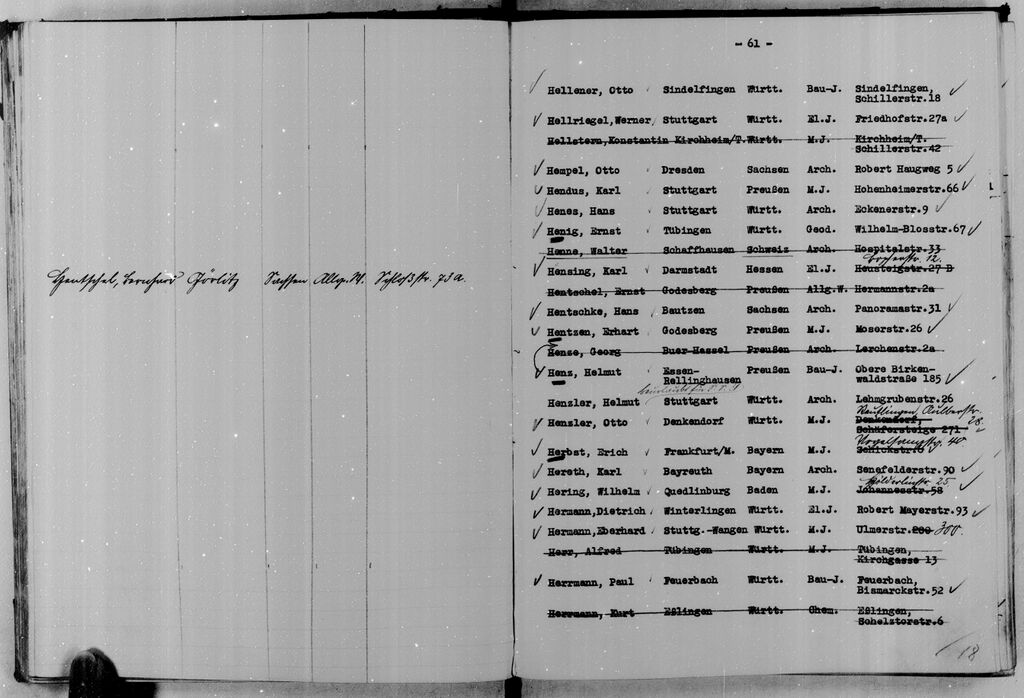 Hentschel, Bernhard Görlitz Sachsen Allg.W. Schloßstr. 73a.
- 61 -
Hellener, Otto Sindelfingen Württ. Bau-J. Sindelfingen,
Schillerstr.18
Hellriegel,Werner Stuttgart Württ. El.J. Friedhofstr.27a
Hellstern,Konstantin Kirchheim/T.Württ. M.J. Kirchheim/T.
Schillerstr.42
Hempel, Otto Dresden Sachsen Arch. Robert Haugweg 5
Hendus, Karl Stuttgart Preußen M.J. Hohenheimerstr.66
Henes, Hans Stuttgart Württ. Arch. Eckenerstr.9
Henig, Ernst Tübingen Württ. Geod. Wilhelm-Blosstr.67
Henne, Walter Schaffhausen Schweiz Arch. Hospitalstr.33
12.
Hensing, Karl Darmstadt Hessen El.J. Heusteigstr.27 B
Hentschel, Ernst Godesberg Preußen Allg.W. Hermannstr.2a
Hentschke, Hans Bautzen Sachsen Arch. Panoramastr.31
Hentzen, Erhart Godesberg Preußen M.J. Moserstr.26
Henze, Georg Buer-Hassel Preußen Arch. Lerchenstr.2a
Henz, Helmut Essen- Preußen Bau-J. Obere Birken-
Rellinghausen waldstraße 185
Henzler, Helmut Stuttgart Württ. Arch. Lehmgrubenstr.26
Reutlingen,
Henzler, Otto Denkendorf Württ. M.J. Denkendorf, 28.
Schäfersteige 271
Vogelsangstr. 40
Herbst, Erich Frankfurt/M. Bayern M.J. Schickstr.6
Hereth, Karl Bayreuth Bayern Arch. Senefelderstr.90
Hölderlinstr. 25
Hering, Wilhelm Quedlinburg Baden M.J. Johannesstr.58
Hermann,Dietrich Winterlingen Württ. El.J. Robert Mayerstr.93
Hermann,Eberhard Stuttg.-Wangen Württ. M.J. Ulmerstr.200 300.
Herr, Alfred Tübingen Württ. M.J. Tübingen,
Kirchgasse 13
Herrmann, Paul Feuerbach Württ. Bau-J. Feuerbach,
Bismarckstr.52
Herrmann, Kurt Eßlingen Württ. Chem. Eßlingen,
Schelztorstr.6
18